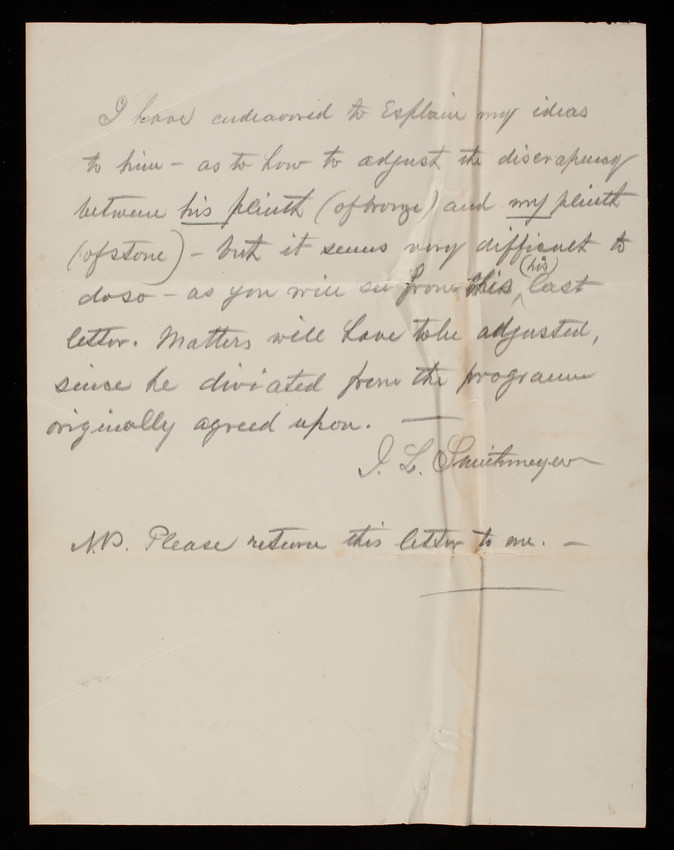 I have endeavored to Esplain my ideas
to him - as to how to adjust the discrapency
between his plinth (of bronze) and my plinth
(of stone) - but it seems very difficult to
doso - as you will see from this (his) last
letter. Matters will have tobe adjusted,
since he diviated from the programe
originally agreed upon. —
J. L. Smithmeyer
N.B. Please return this letter to me. —